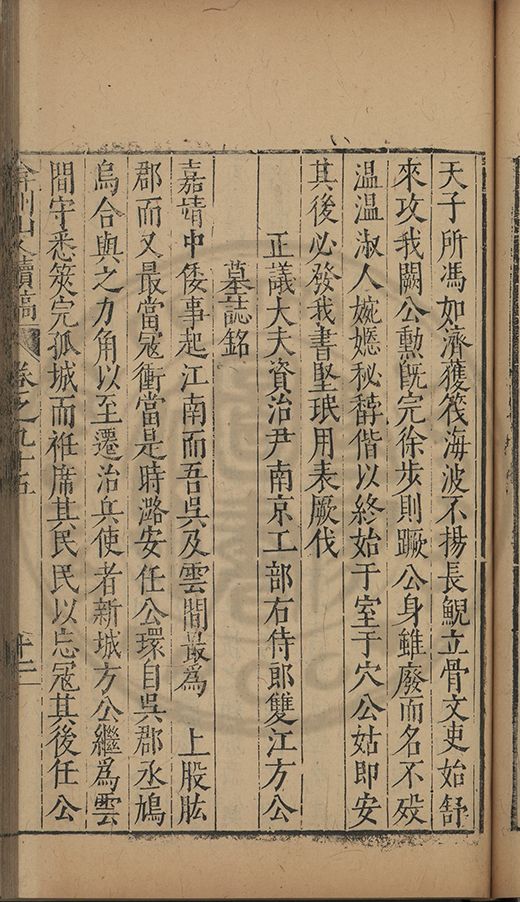 天子所馮如濟獲筏海波不揚長鯢立骨文吏始舒
來攻我闕公勲旣完徐步則蹶公身雖廢而名不歿
温温淑人婉嫕秘馞偕以終始于室于穴公姑即安
其後必發我書堅珉用表厥伐
正議大夫資治尹南京工部右侍郎雙江方公
墓誌銘
嘉靖中倭事起江南而吾吳及雲間最爲 上股肱
郡而又最當寇衝當是時潞安任公環自吳郡丞鳩
烏合與之力角以至遷治兵使者新城方公繼爲雲
間守悉筴完孤城而袵席其民民以忘寇其後任公
弇州山人續稿 卷之九十五 十二